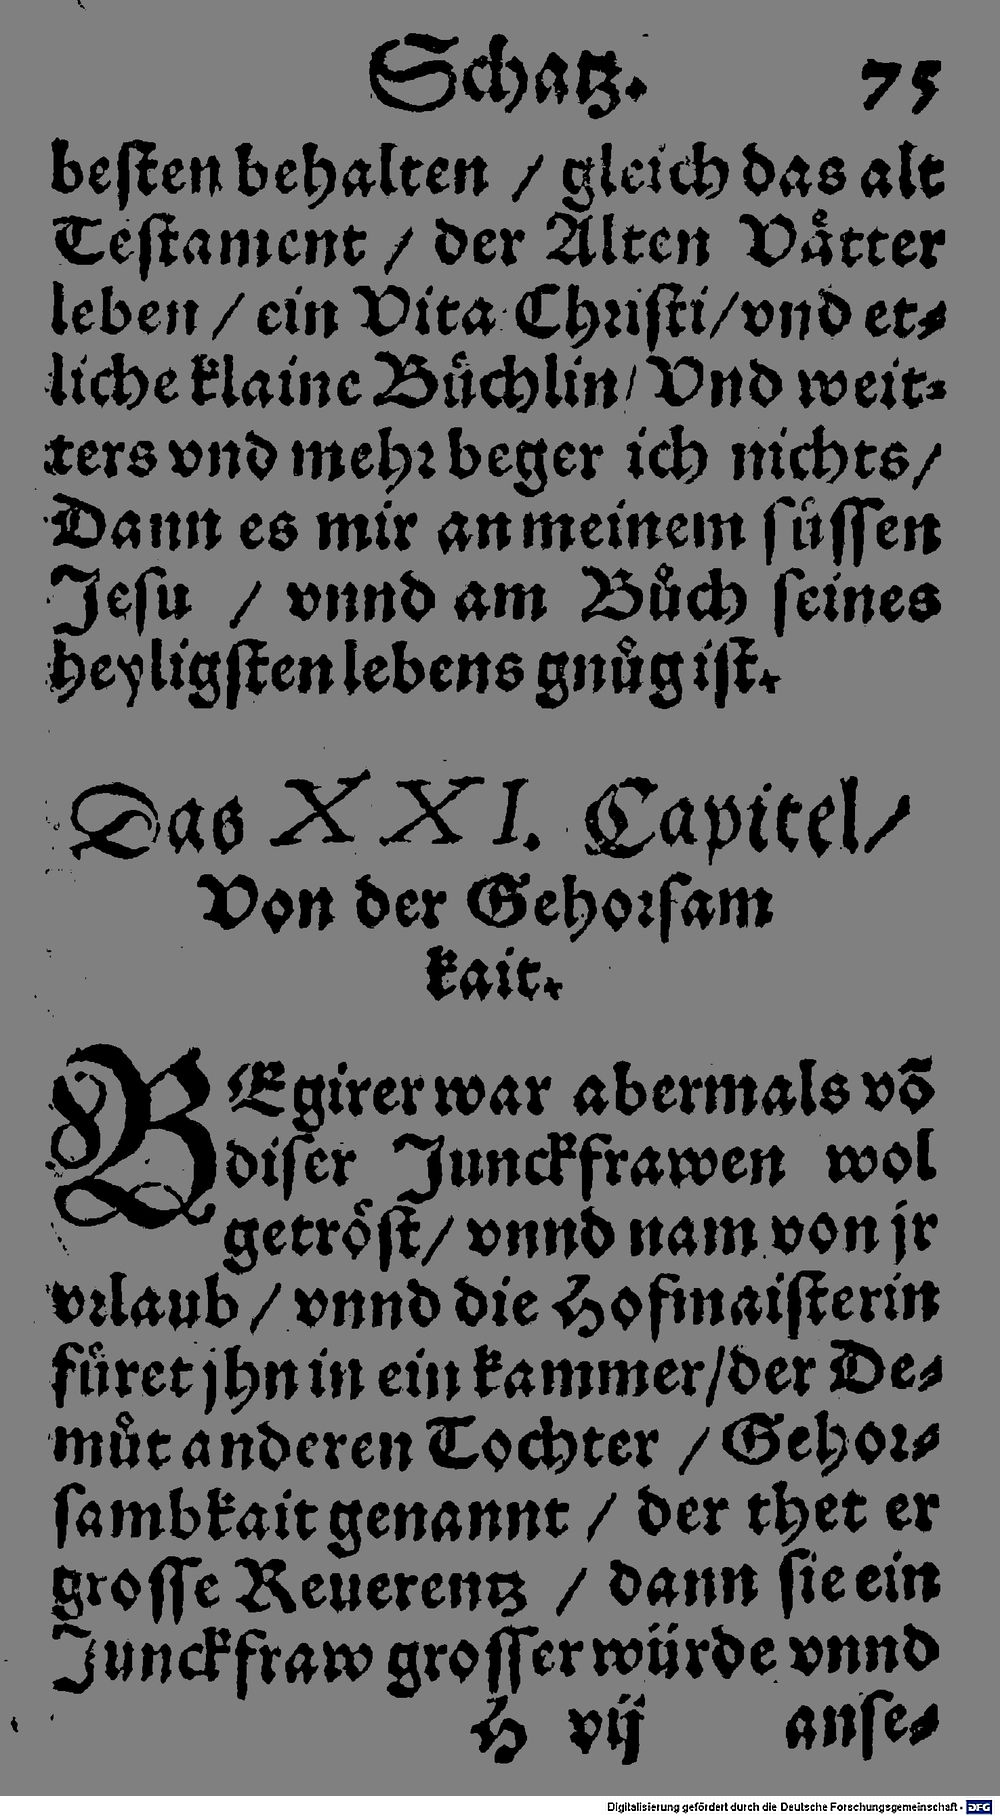 Schatz. 75
beſten behalten / gleich das alt
Teſtament / der Alten Vaͤtter
leben / ein Vita Chriſti / vnd et⸗
liche klaine Buͤchlin / Vnd weit⸗
ters vnd mehr beger ich nichts /
Dann es mir an meinem ſuͤſſen
Jeſu / vnnd am Buͦch ſeines
heyligſten lebens gnuͦg iſt.
Das XXI. Capitel /
Von der Gehorſam
kait.
BEgirer war abermals võ
diſer Junckfrawen wol
getroͤſt / vnnd nam von jr
vrlaub / vnnd die Hofmaiſterin
fuͤret jhn in ein kammer / der De⸗
muͦt anderen Tochter / Gehor⸗
ſambkait genannt / der thet er
groſſe Reuerentz / dann ſie ein
Junckfraw groſſer würde vnnd
H vij anſe⸗
Digitalisierung gefördert durch die Deutsche Forschungsgemeinschaft - DFG